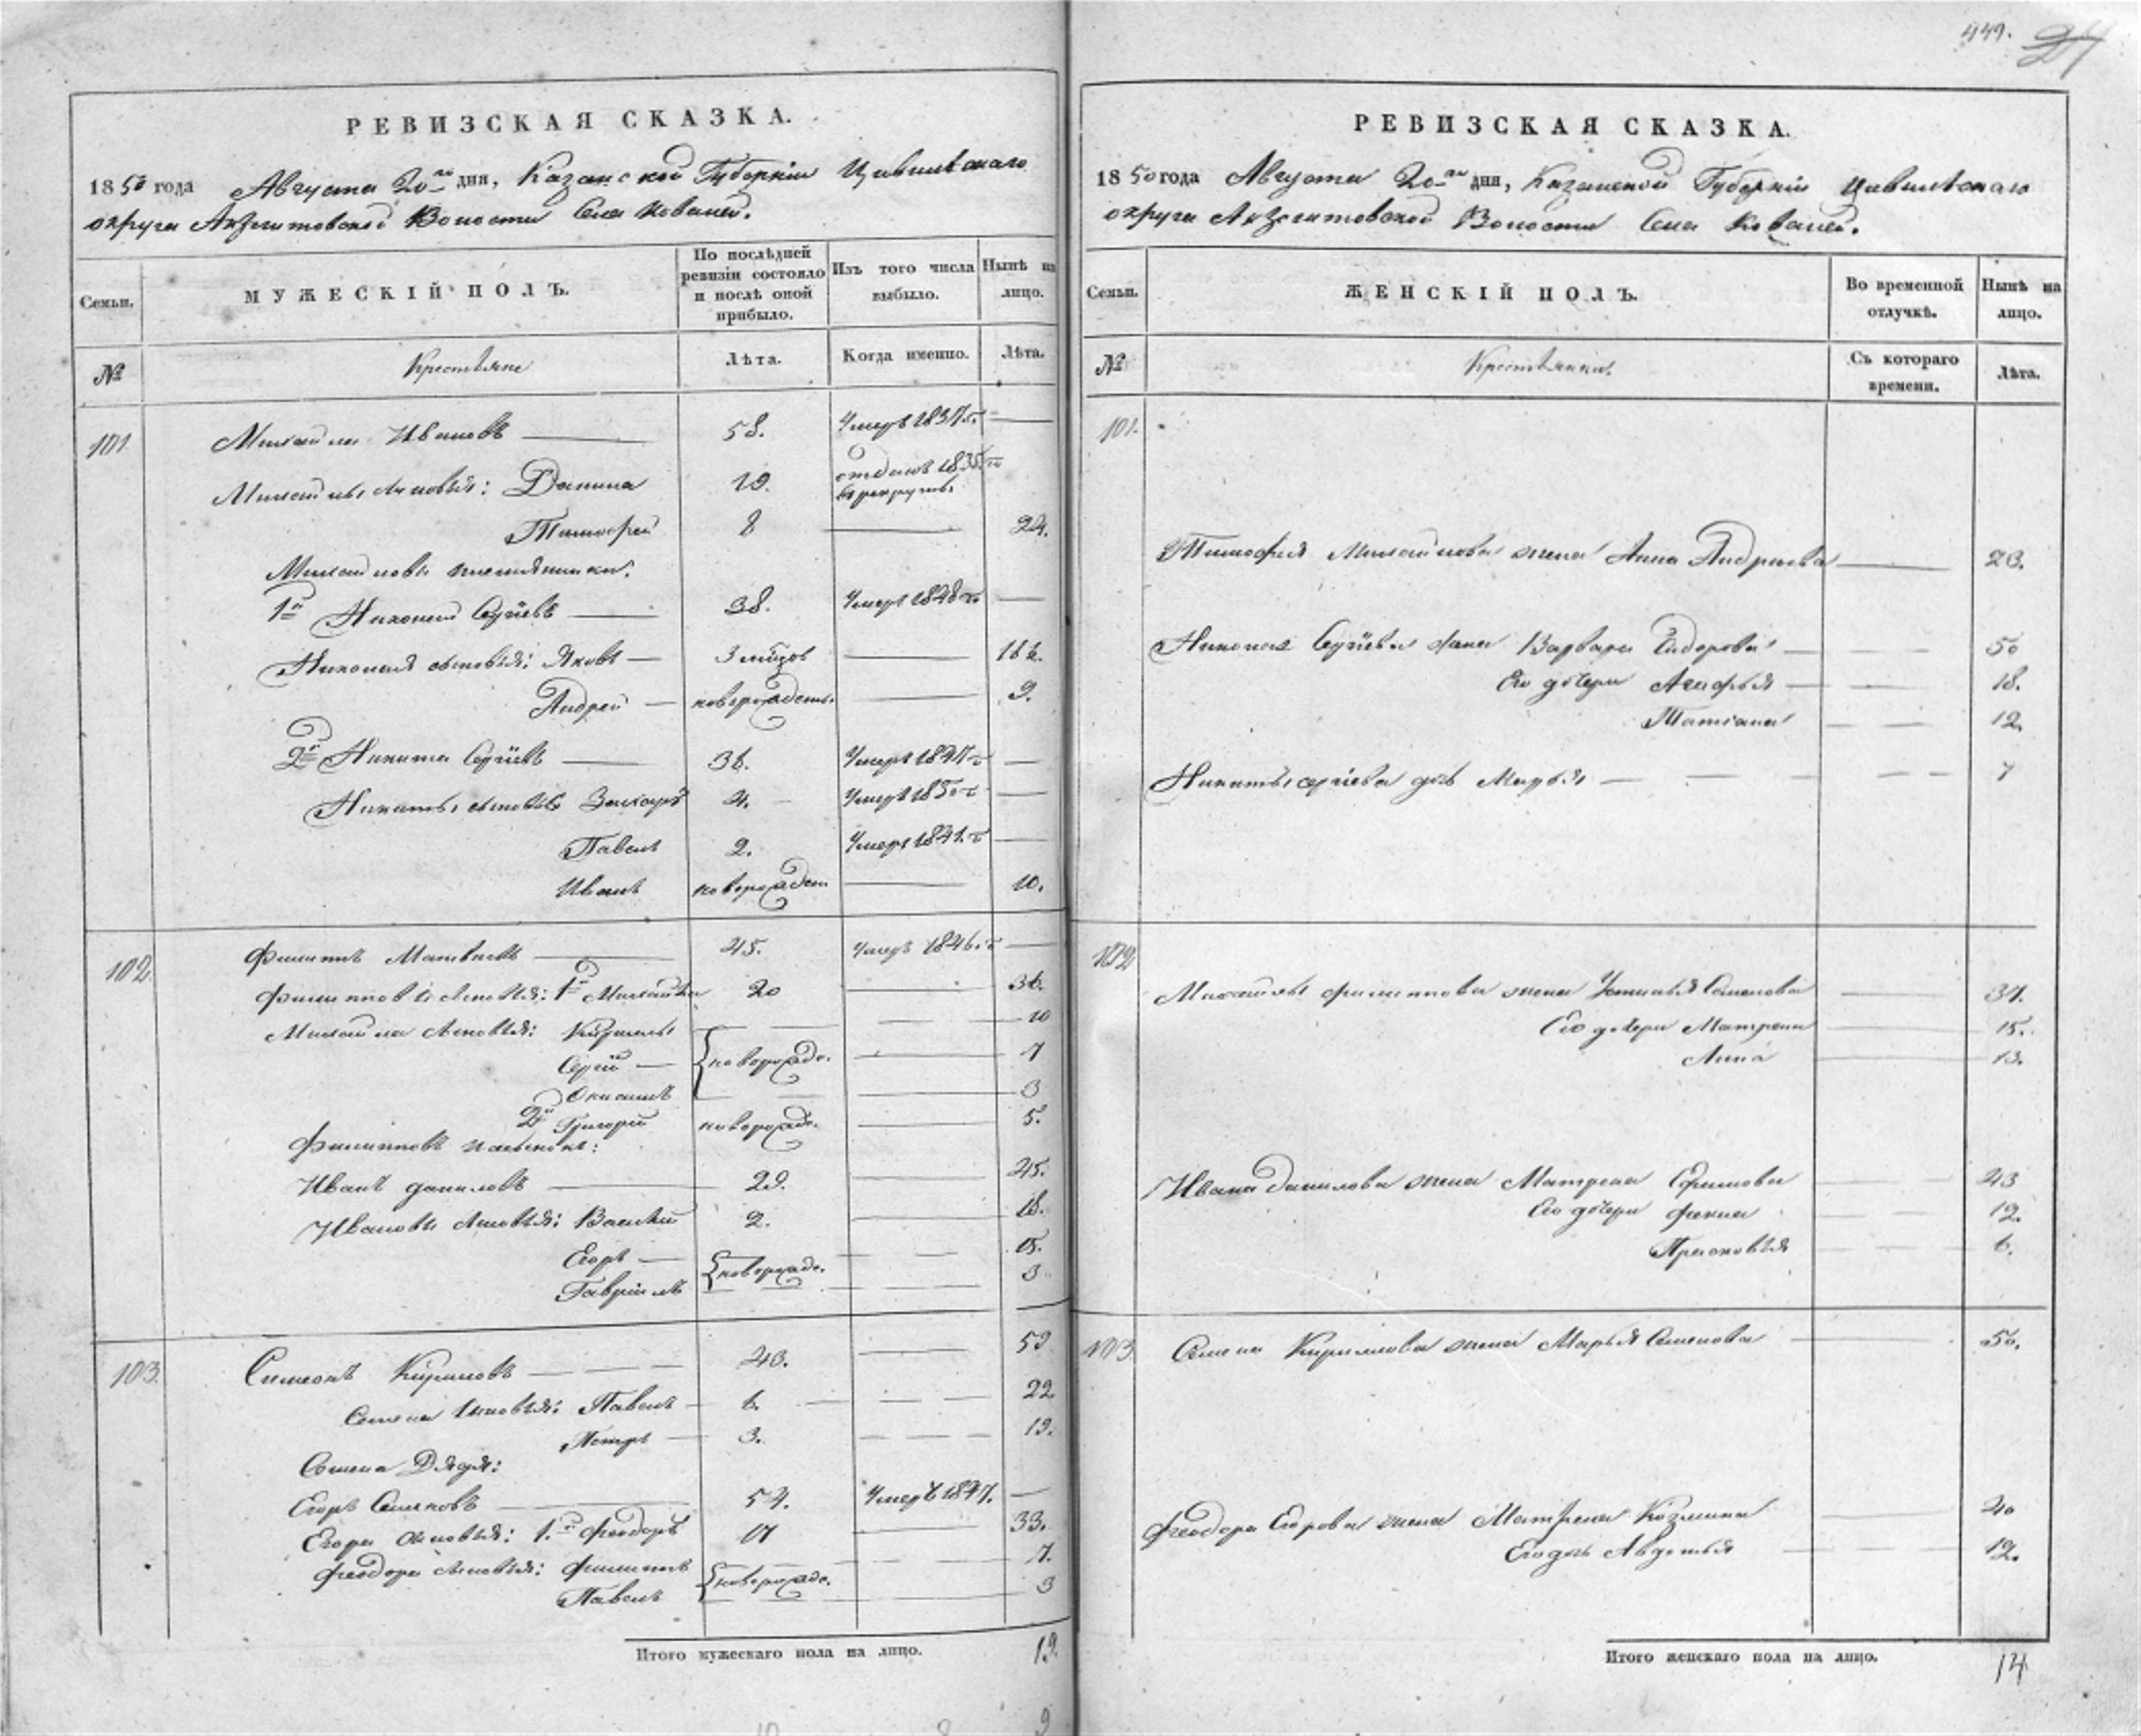 РЕВИЗСКАЯ СКАЗКА.
1850 года Августа 20го дня, Казанской Губерніи Цивильскаго
округа Акзегитовской Волости Села Ковалей.
Семьи. МУЖЕСКІЙ ПОЛЪ. По послѣдней ревизіи состояло и послѣ оной прибыло. Изъ того числа выбыло. Нынѣ на лицо.
№ Крестьяне Лѣта. Когда именно. Лѣта.
101. Михайла Ивановъ 58. Умеръ 1837 г.
Михайлы сыновья: Данила 19. отданъ 1835 г. въ рекруты
Тимофей 8 24.
Михайловы племянники:
1й Николай Сергѣевъ 38. Умеръ 1848 г.
Николая сыновья: Яковъ 3 мѣсяцов 16½.
Андрей новорожденъ. 9.
2й Никита Сергѣевъ 36. Умеръ 1847 г.
Никиты сыновья Захаръ 4. Умеръ 1850 г.
Павелъ 2. Умеръ 1841 г.
Иванъ новорожден 10.
102. Филиппъ Матвѣевъ 45. Умеръ 1846 г.
Филипповы сыновья: 1й Михайла 20 36.
Михайла сыновья: Кирилъ 10
Сергѣй новорожде. 7
3
2й Григорій новорожде. 5.
Филипповъ племянникъ:
Иванъ Даниловъ 29. 45.
Ивановы сыновья: Василій 2. 18.
Егоръ 15.
Гавріилъ новорожде. 3
103. Симеонъ Кириловъ 43. 59
Семена сыновья: Павелъ 6. 22
Петръ 3. 19.
Семена Дядя:
Егоръ Семеновъ 54. Умеръ 1847.
Егора сыновья: 1й Феодоръ 17 33.
Феодора сыновья: Филиппъ 7.
Павелъ новорожде. 3
Итого мужескаго пола на лицо. 19.
449. 27
РЕВИЗСКАЯ СКАЗКА.
1850 года Августа 20го дня, Казанской Губерніи Цивильскаго
округа Акзегитовской Волости Села Ковалей.
Семьи. ЖЕНСКІЙ ПОЛЪ. Во временной отлучкѣ. Нынѣ на лицо.
№ Крестьянки. Съ котораго времени. Лѣта.
101.
Тимофея Михайлова жена Анна Андреева 23.
Николая Сергѣева жена Варвара Сидорова 50
Его дочери Агафья 18.
Татіана 12.
Никиты Сергѣева дочь Марья 7
102
Михайлы Филиппова жена Устинья Семенова 37.
Его дочери Матрена 15.
Анна 13.
Ивана Данилова жена Матрена Ефимова 43
Его дочери Фекла 12.
Прасковья 6.
103 Семена Кириллова жена Марья Семенова 50.
Феодора Егорова жена Матрена Козмина 40
Его дочь Авдотья 12.
Итого женскаго пола на лицо. 14